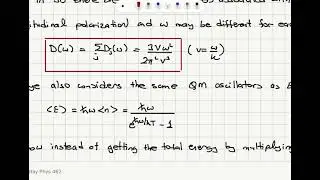 longitudinal polarization and ω may be different for each
D(ω) = Σ_j D_j(ω) = 3Vω² / 2π²v³ (v = ω/k)
also considers the same QM oscillators as
⟨E⟩ = ħω⟨n⟩ = ħω / (e^{ħω/kT} − 1)
now instead of getting the total energy by multiplying
Phys 462